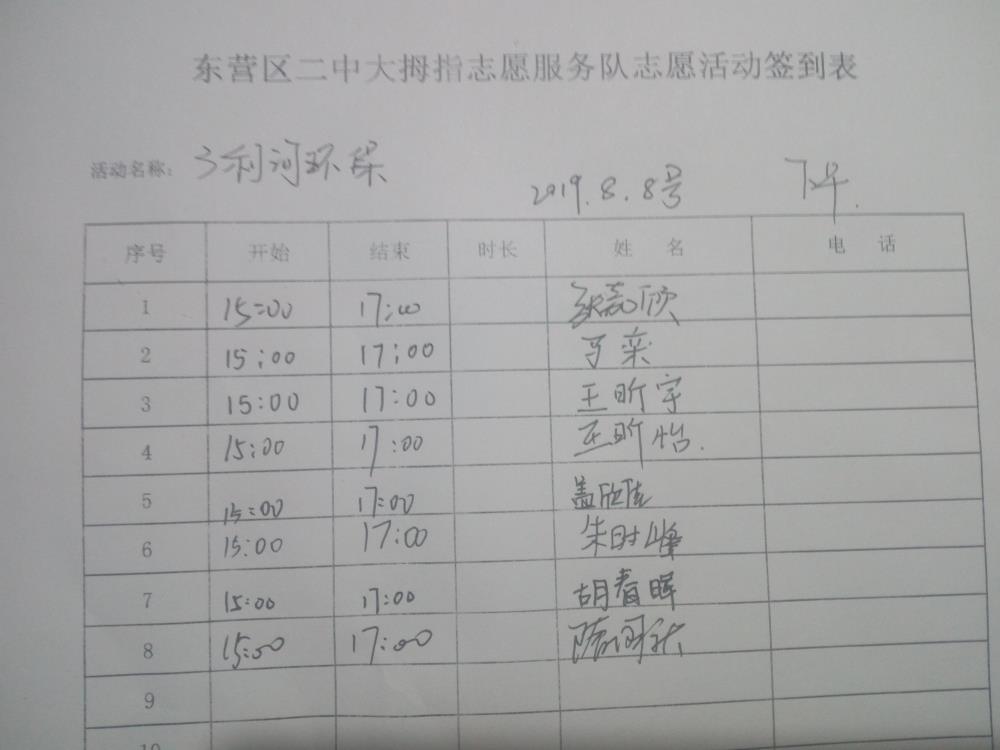 东营区二中大拇指志愿服务队志愿活动签到表
活动名称: 利河环保
2019.8.8号 下午.
序号 开始 结束 时长 姓名 电话
1 15:00 17:00
2 15:00 17:00 栾
3 15:00 17:00 王昕宇
4 15:00 17:00 王昕怡.
5 15:00 17:00 盖欣
6 15:00 17:00 朱时峰
7 15:00 17:00 胡春晖
8 15:00 17:00
9
10